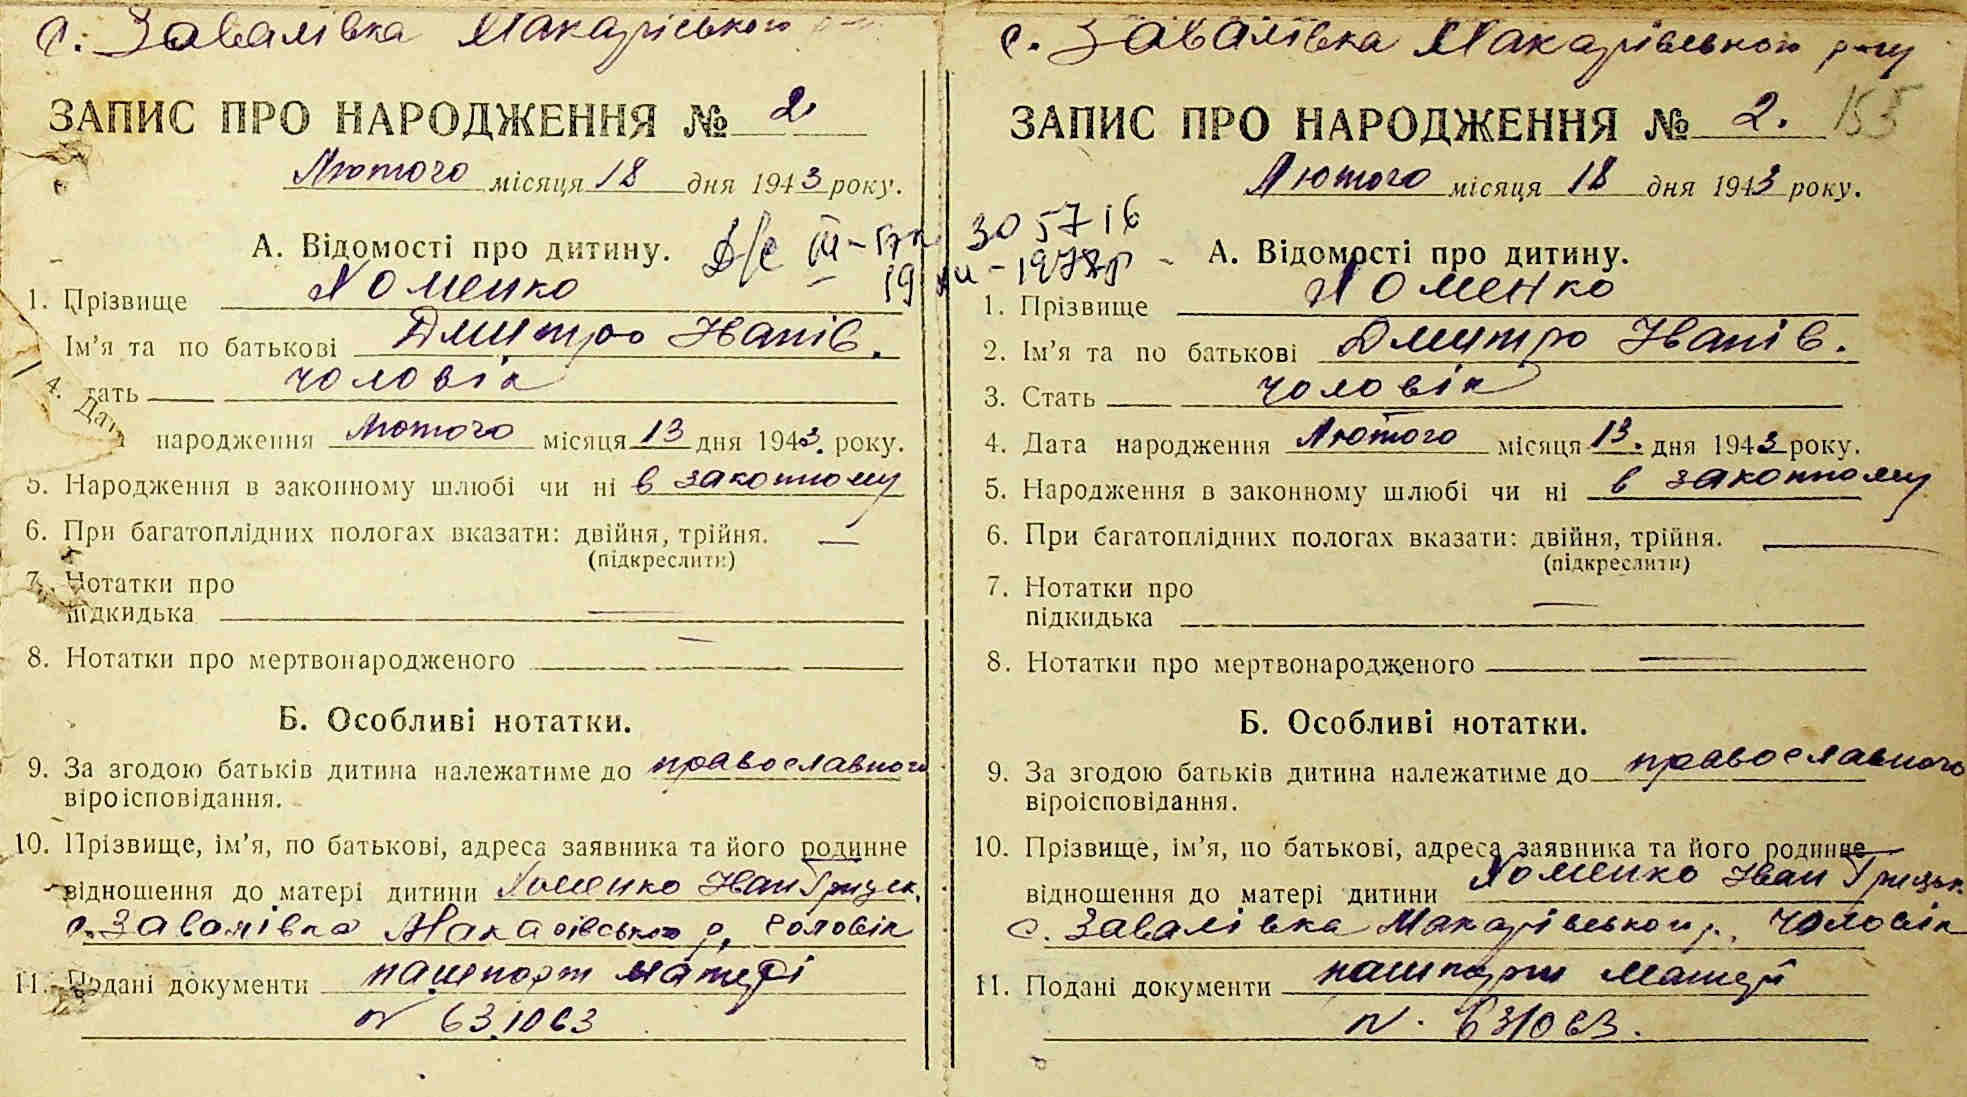 с. Завалівка Макарівського р-ну
ЗАПИС ПРО НАРОДЖЕННЯ № 2
Лютого місяця 18 дня 1943 року.
А. Відомості про дитину.
1. Прізвище Хоменко
Ім’я та по батькові Дмитро Іванів.
тать чоловік
4. Дата народження Лютого місяця 13 дня 1943. року.
5. Народження в законному шлюбі чи ні в законному
6. При багатоплідних пологах вказати: двійня, трійня. —
(підкреслити)
7. Нотатки про
підкидька —
8. Нотатки про мертвонародженого —
Б. Особливі нотатки.
9. За згодою батьків дитина належатиме до православного
віроісповідання.
10. Прізвище, ім’я, по батькові, адреса заявника та його родинне
відношення до матері дитини Хоменко Іван Грицьк.
с. Завалівка Макарівського р, чоловік
11. Подані документи пашпорт матері
№ 631063
305716
с. Завалівка Макарівського р-ну
ЗАПИС ПРО НАРОДЖЕННЯ № 2. 155
Лютого місяця 18 дня 1943 року.
А. Відомості про дитину.
1. Прізвище Хоменко
2. Ім’я та по батькові Дмитро Іванів.
3. Стать чоловік
4. Дата народження Лютого місяця 13. дня 1943 року.
5. Народження в законному шлюбі чи ні в законному
6. При багатоплідних пологах вказати: двійня, трійня. —
(підкреслити)
7. Нотатки про
підкидька —
8. Нотатки про мертвонародженого —
Б. Особливі нотатки.
9. За згодою батьків дитина належатиме до православного
віроісповідання.
10. Прізвище, ім’я, по батькові, адреса заявника та його родинне
відношення до матері дитини Хоменко Іван Грицьк
с. Завалівка Макарівського р., чоловік
11. Подані документи пашпорт матері
№. 631063.